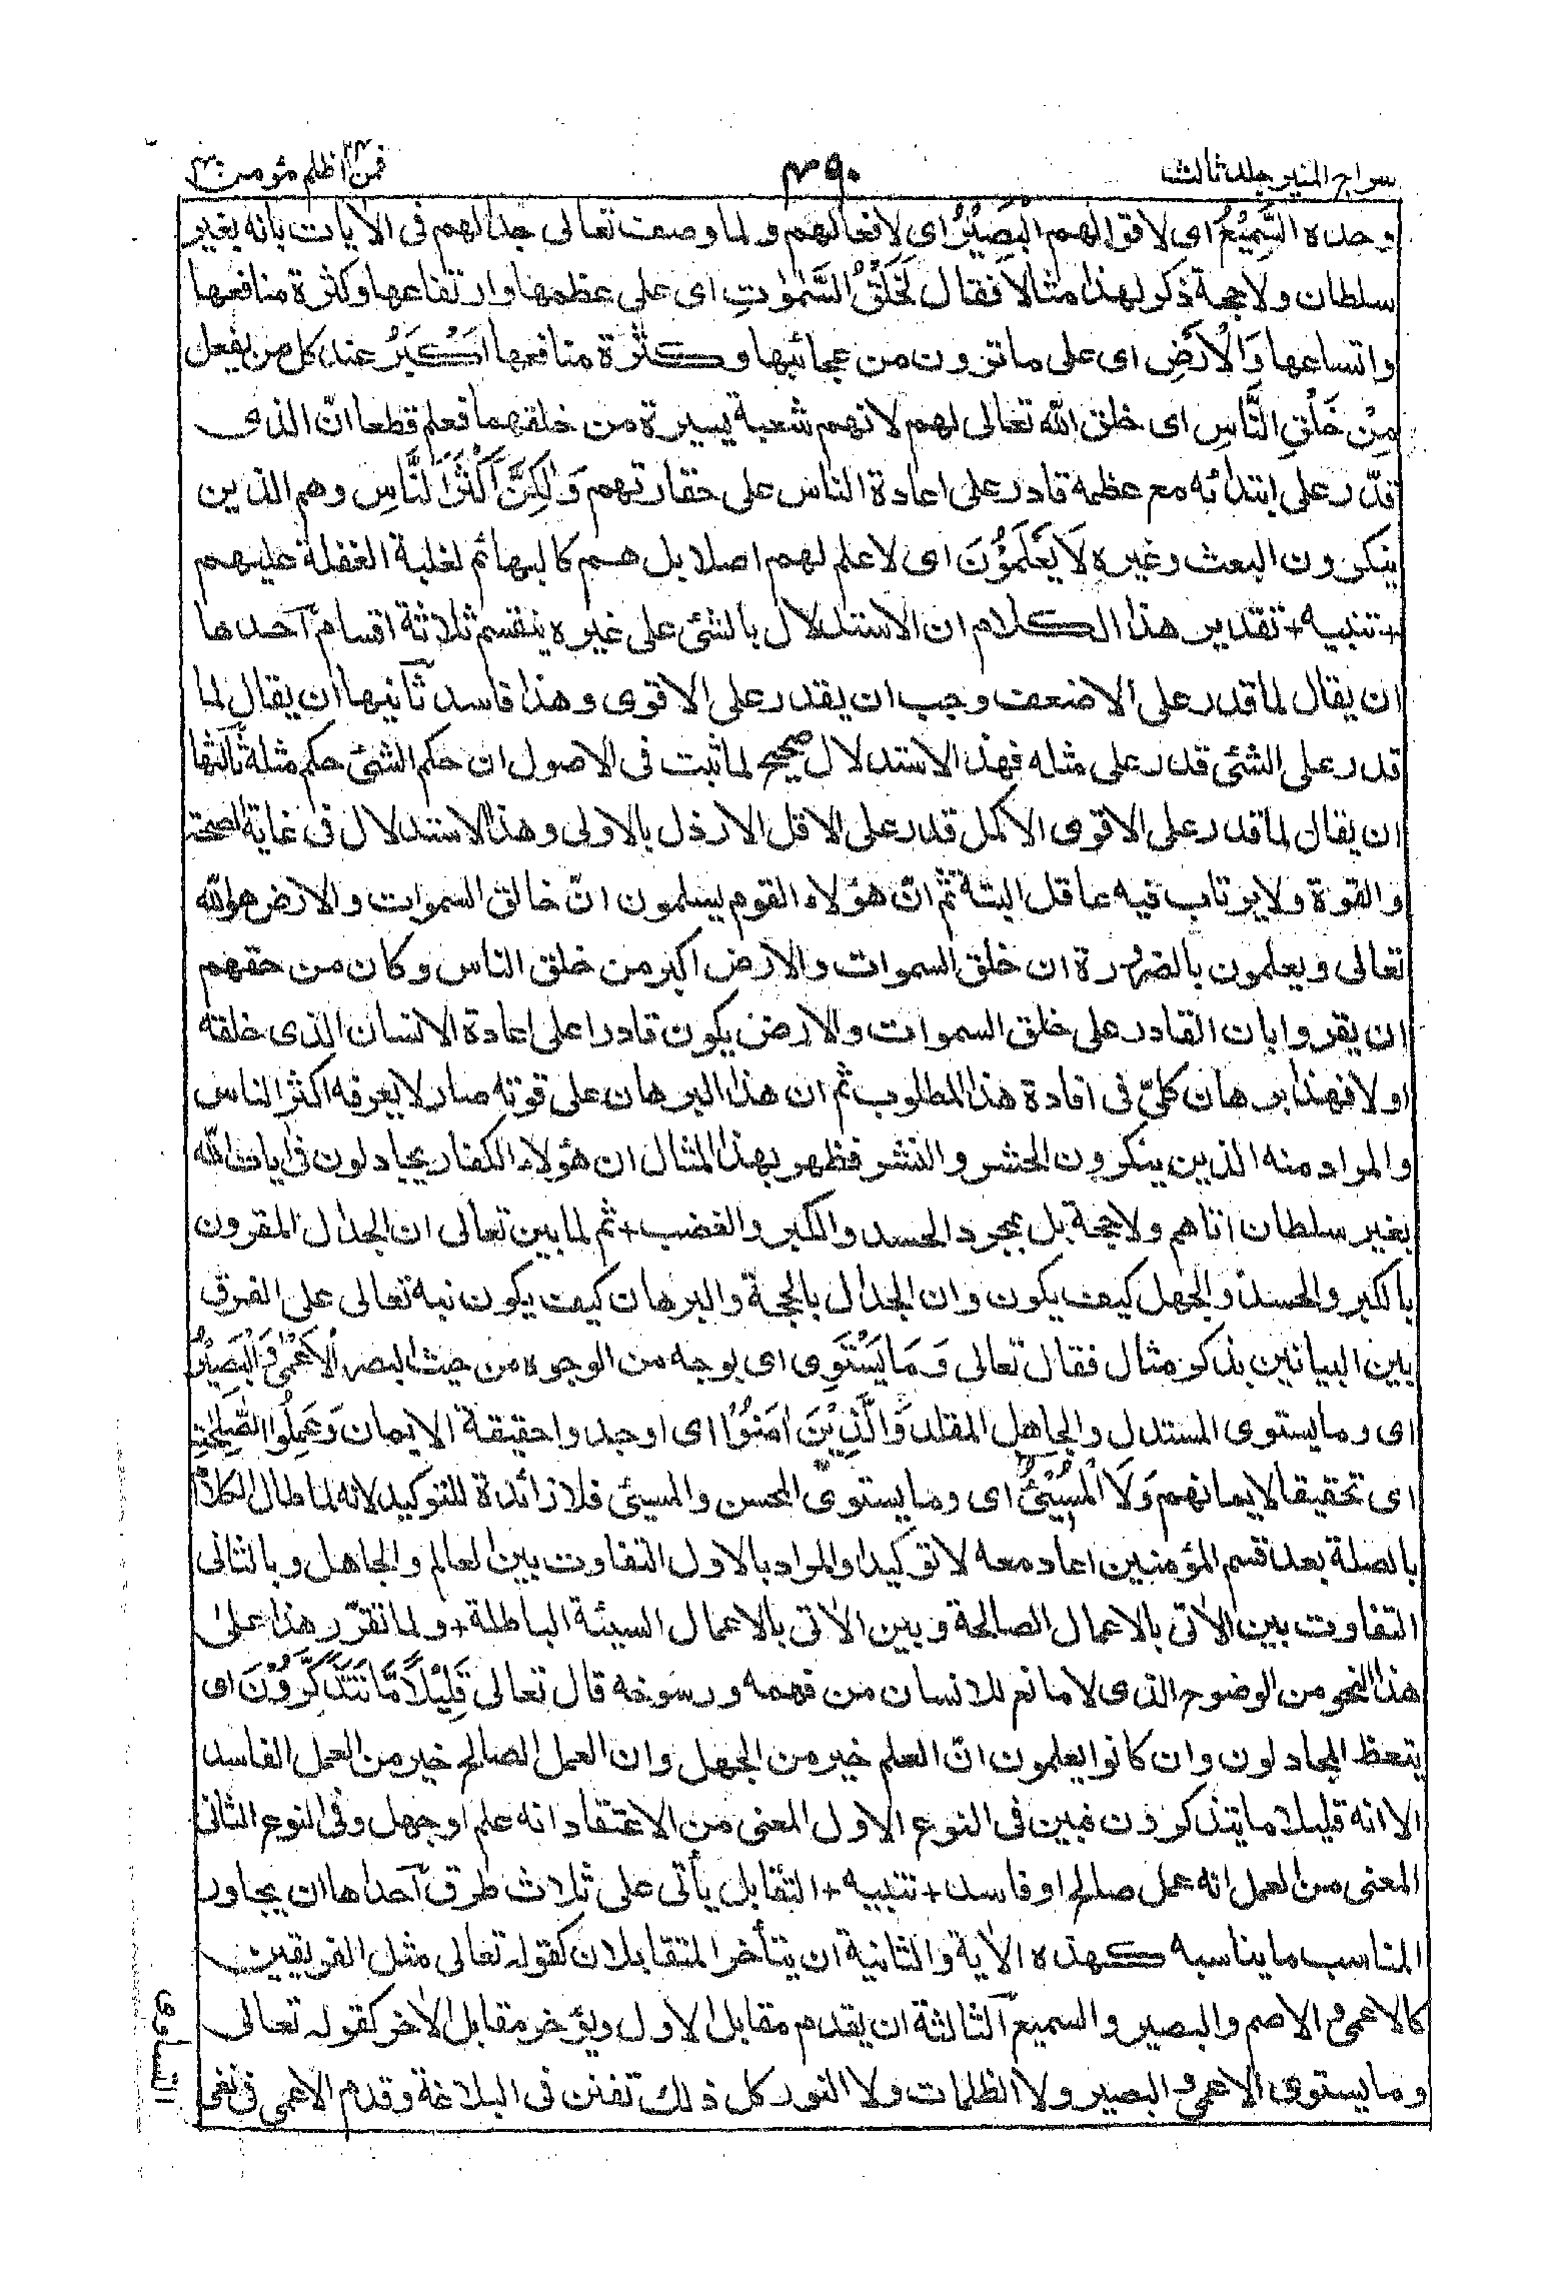 سراج المنير جلد ثالث
٤٩٠
فمن اظلم ٢٤ مؤمن ٤٠
وحده السَّمِيْعُ اى لاقوالهم الْبَصِيْرُ اى لافعالهم ولما وصف تعالى جدالهم فى الاٰيات بانه بغير
سلطان ولا حجة ذكر لهذا مثالا فقال لَخَلْقُ السَّمٰوٰتِ اى على عظمها وارتفاعها وكثرة منافعها
واتساعها وَالْاَرْضِ اى على ما ترون من عجائبها وكثرة منافعها اَكْبَرُ عند كل من يعقل
مِنْ خَلْقِ النَّاسِ اى خلق الله تعالى لهم لانهم شعبة يسيرة من خلقهما فعلم قطعا انّ الذى
قدّر على ابتدائه مع عظمه قادر على اعادة الناس على حقارتهم وَلٰكِنَّ اَكْثَرَ النَّاسِ وهم الذين
ينكرون البعث وغيره لَا يَعْلَمُوْنَ اى لا علم لهم اصلا بل هم كالبهائم لغلبة الغفلة عليهم
+ تنبيه + تقدير هذا الكلام ان الاستدلال بالشئ على غيره ينقسم ثلاثة اقسام آحدها
ان يقال لما قدر على الاضعف وجب ان يقدر على الاقوى وهذا فاسد ثآنيها ان يقال لما
قدر على الشئ قدر على مثله فهذا الاستدلال صحيح لما ثبت فى الاصول ان حكم الشئ حكم مثله ثآلثها
ان يقال لما قدر على الاقوى الاكمل قدر على الاقل الارذل بالاولى وهذا الاستدلال فى غاية الصحة
والقوة ولا يرتاب فيه عاقل البتة ثم انّ هؤلاء القوم يسلمون انّ خالق السموات والارض هو الله
تعالى ويعلمون بالضرورة ان خلق السموات والارض اكبر من خلق الناس وكان من حقهم
ان يقروا بان القادر على خلق السموات والارض يكون قادرا على اعادة الانسان الذى خلقه
اولا فهذا برهان كلىّ فى افادة هذا المطلوب ثم ان هذا البرهان على قوته صار لا يعرفه اكثر الناس
والمراد منه الذين ينكرون الحشر والنشر فظهر بهذا المثال ان هؤلاء الكفار يجادلون فى اٰيات الله
بغير سلطان اتاهم ولا حجة بل بمجرد الحسد والكبر والغضب + ثم لما بين تعالى ان الجدال المقرون
بالكبر والحسد والجهل كيف يكون وان الجدال بالحجة والبرهان كيف يكون نبه تعالى على الفرق
بين البيانين بذكر مثال فقال تعالى وَمَا يَسْتَوِى اى بوجه من الوجوه من حيث البصر الْاَعْمٰى وَالْبَصِيْرُ
اى وما يستوى المستدل والجاهل المقلد وَالَّذِيْنَ اٰمَنُوْا اى اوجدوا حقيقة الايمان وَعَمِلُوا الصّٰلِحٰتِ
اى تحقيقا لايمانهم وَلَا الْمُسِيْئُ اى وما يستوى المحسن والمسيئ فلا زائدة للتوكيد لانه لما طال الكلام
بالصلة بعد قسم المؤمنين اعاد معه لا توكيدا والمراد بالاول التفاوت بين العالم والجاهل وبالثانى
التفاوت بين الاٰتى بالاعمال الصالحة وبين الاٰتى بالاعمال السيئة الباطلة + ولما تقرّر هذا على
هذا النحو من الوضوح الذى لا مانع للانسان من فهمه ورسوخه قال تعالى قَلِيْلًا مَّا تَتَذَكَّرُوْنَ اى
يتعظ المجادلون وان كانوا يعلمون انّ العلم خير من الجهل وان العمل الصالح خير من العمل الفاسد
الا انه قليلا ما يتذكرون فبين فى النوع الاول المعنى من الاعتقاد انه علم او جهل وفى النوع الثانى
المعنى من العمل انه عمل صالح او فاسد + تنبيه + التقابل يأتى على ثلاث طرق آحداها ان يجاور
المناسب ما يناسبه كهذه الاٰية والثانية ان يتأخر المتقابلان كقوله تعالى مثل الفريقين
كالاعمى والاصم والبصير والسميع آلثالثة ان يقدم مقابل الاول ويؤخر مقابل الاٰخر كقوله تعالى
وما يستوى الاعمى والبصير ولا الظلمات ولا النور كل ذلك تفنن فى البلاغة وقدم الاعمى فى نفى
التساوى